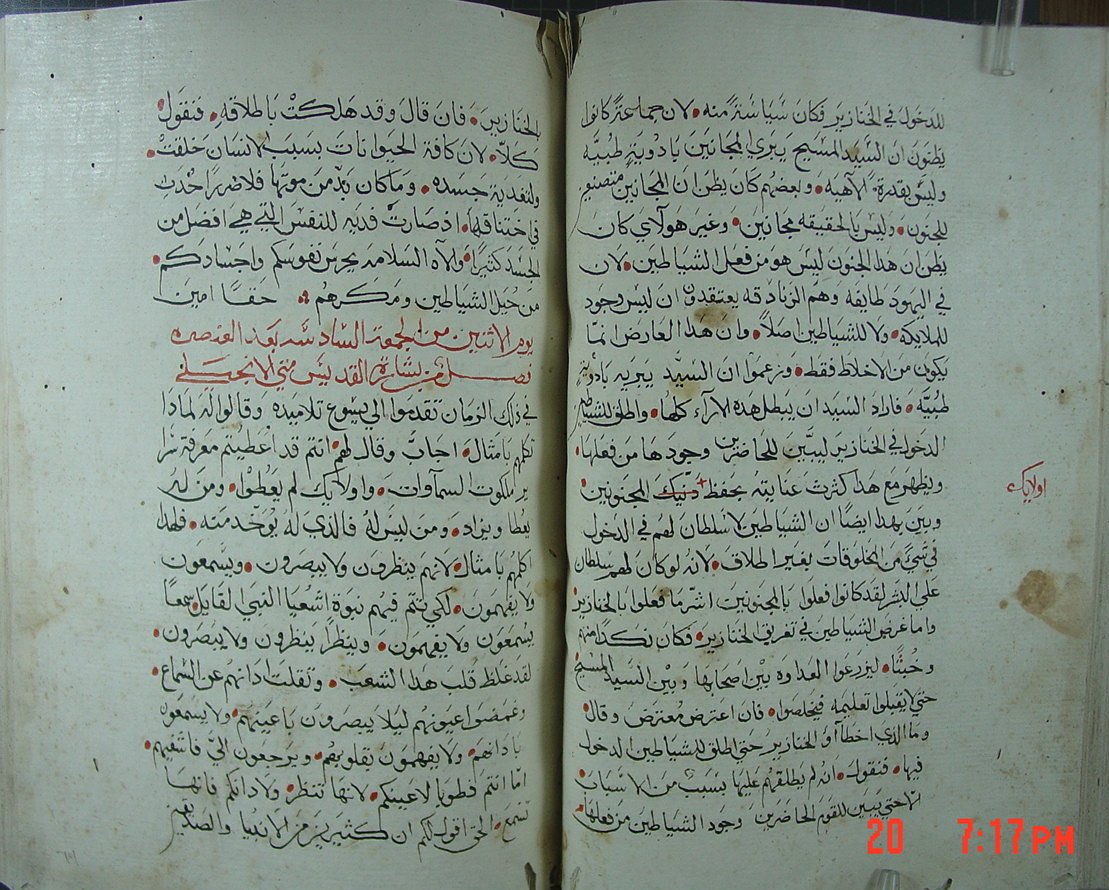 للدخول في الخنازير فكان سياسةً منه • لان جماعةً كانوا
يظنون ان السيد المسيح يبري المجانين بادويةٍ طبيه
وليس بقدرة الاهيه • وبعضهم كان يظن ان المجانين متصنعو
للجنون • وليس بالحقيقه مجانين • وغير هولآي كان
يظن ان هذا الجنون ليس هو من فعل الشياطين • لان
في اليهود طايفه وهم الزنادقه يعتقدون ان ليس وجود
للملايكه • ولا للشياطين اصلاً • وان هذا العارض انما
يكون من الاخلاط فقط • وزعموا ان السيد يبريه بادويةٍ
طبيه • فاراد السيد ان يبطل هذه الآراء كلها • واطلق للشياطين
الدخول في الخنازير ليبين للحاضرين وجودها من فعلها •
ويظهر مع هذا كثرت عنايته بحفظ + المجنونين •
اولايك
وبين بهذا ايضاً ان الشياطين لا سلطان لهم في الدخول
في شيٍ من المخلوقات بغير اطلاق • لانه لو كان لهم سلطان
علي البشر لقد كانوا فعلوا بالمجنونين اشر ما فعلوا بالخنازير
واما غرض الشياطين في تغريق الخنازير • فكان نكداً منهم
وخبثاً • ليزرعوا العداوه بين اصحابها وبين السيد المسيح
حتي لا يقبلوا تعليمه فيخلصوا • فان اعترض معترض وقال
وما الذي اخطأ أو الخنازير حتي اطلق للشياطين الدخول
فيها • فنقول • انه لم يطلقهم عليها بسبب من الاسباب
الا حتي يبين للقوم الحاضرين وجود الشياطين من فعلها •
الخنازير • فان قال وقد هلكتْ باطلاقه • فنقول •
كلّا • لان كافة الحيوانات بسبب الانسان خلقتْ •
ولتغدية جسده • وما كان بدّ من موتها فلا ضرراً حدث
في اختناقها • اذ صارت فديه للنفس التي هي افضل من
الجسد كثيراً • والاه السلامه يحرس نفوسكم واجسادكم •
من حيل الشياطين ومكرهم • حقاً امين
يوم الاثنين من الجمعة السادسه بعد العنصره
فصل من بشارة القديس متي الانجيلي
في ذلك الزمان تقدموا الي يسوع تلاميذه وقالوا له لماذا
تكلمهم بامثال • اجاب وقال لهم انتم قد اعطيتم معرفة سرا
ير ملكوت السماوات • واولايك لم يعطوا • ومن له
يعطا ويزاد • ومن ليس له فالذي له يوخد منه • فلهذا
اكلمهم بامثال • لانهم ينظرون ولا يبصرون • ويسمعون
ولا يفهمون • لكي تتم فيهم نبوة اشعيا النبي القايل سمعاً
يسمعون ولا يفهمون • وينظراً ينظرون ولا يبصرون •
لقد غلظ قلب هذا الشعب • وثقلت اذانهم عن السماع •
وغمضوا عيونهم ليلا يبصرون باعينهم • ولا يسمعون
باذانهم • ولا يفهمون بقلوبهم • ويرجعون اليّ فاشفيهم •
امّا انتم فطوبا لاعينكم • لانها تنظر • ولاذانكم فانها
تسمع • الحق اقول لكم ان كثير من الانبيا والصديقين
20 7:17 PM